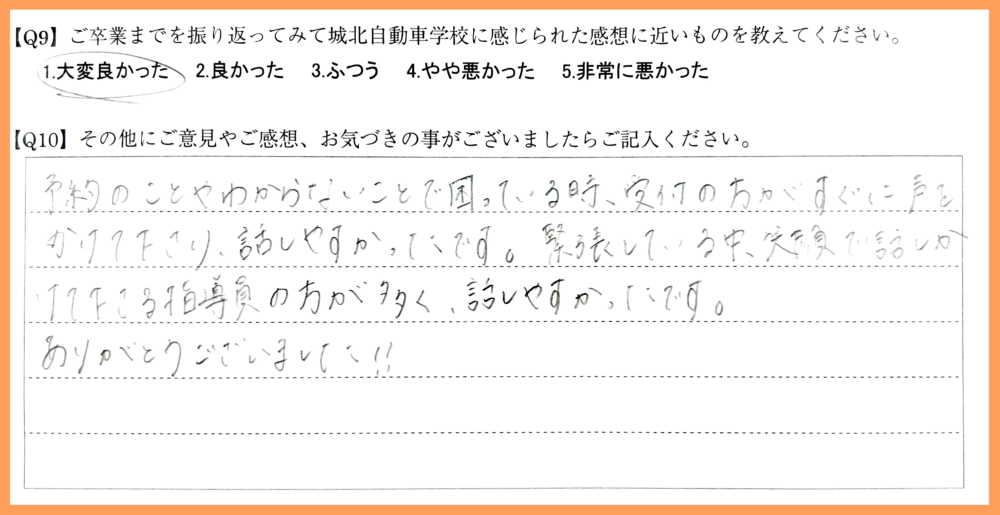 【Q9】ご卒業までを振り返ってみて城北自動車学校に感じられた感想に近いものを教えてください。
1.大変良かった 2.良かった 3.ふつう 4.やや悪かった 5.非常に悪かった
【Q10】その他にご意見やご感想、お気づきの事がございましたらご記入ください。
予約のことやわからないことで困っている時、受付の方がすぐに声を
かけて下さり、話しやすかったです。緊張している中、笑顔で話しか
けて下さる指導員の方が多く、話しやすかったです。
ありがとうございました!!